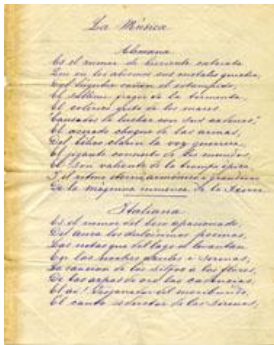 La Música
Alemana
Es el rumor de hirviente catarata
Que en los abismos sus cristales quiebra,
Del fúnebre cañón el estampido,
El sublime fragor de la tormenta,
El colérico grito de los mares
Cansados de luchar con sus cadenas,
El acerado choque de las armas,
Del bélico clarín la voz guerrera,
El gigante concento de los mundos,
El son valiente de la trompa épica
Y el ritmo eterno, armónico y grandioso
De la máquina inmensa de la tierra.
Italiana
Es el rumor del beso apasionado,
Del aura los dulcísimos poemas,
Las notas que del lago se levantan
En las noches azules y serenas,
La canción de los silfos a las flores,
De las arpas de oro las cadencias,
El ¡ai! desgarrador del moribundo,
El canto seductor de las sirenas,